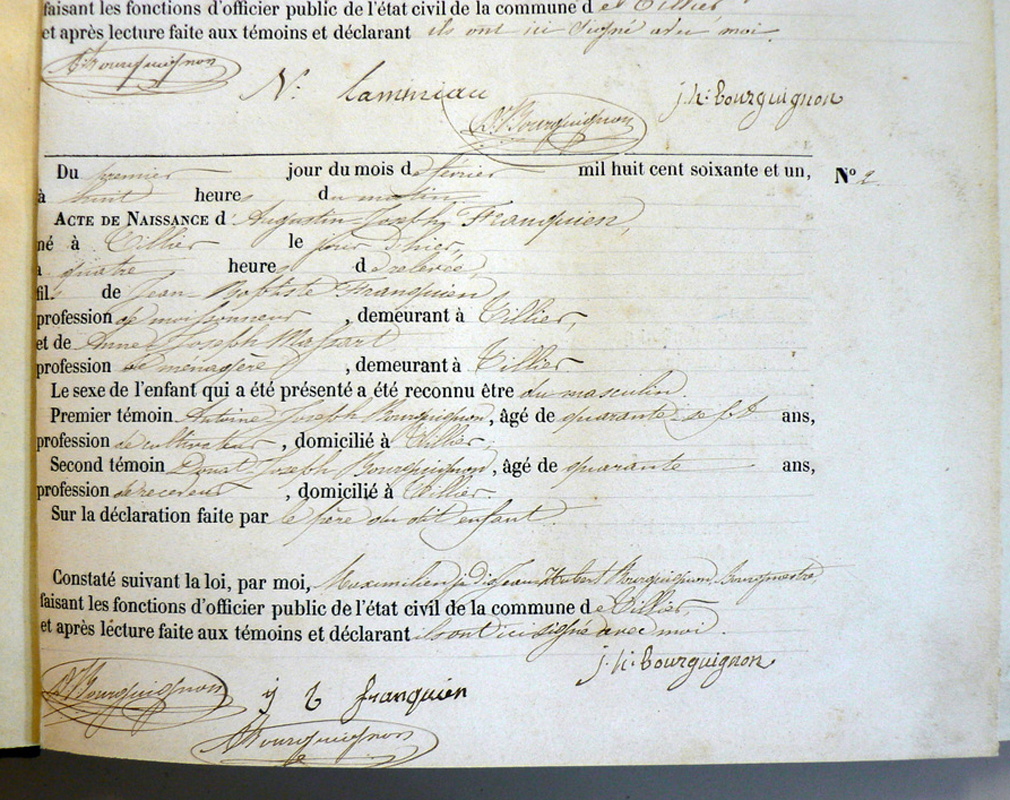 faisant les fonctions d'officier public de l'état civil de la commune d e Tillier
et après lecture faite aux témoins et déclarant ils ont ici signé avec moi.
Bourguignon
N. Lammeau
j. h. bourguignon
D. J. Bourguignon
Du premier jour du mois de février mil huit cent soixante et un, No 2.
à huit heures du matin
ACTE DE NAISSANCE d' Augustin-Joseph Franquien,
né à Tillier le jour d'hier,
à quatre heures d e relevée,
fils de Jean-Baptiste Franquien
profession de moissonneur, demeurant à Tillier,
et de Anne Joseph Massart
profession de ménagère, demeurant à Tillier.
Le sexe de l'enfant qui a été présenté a été reconnu être du masculin.
Premier témoin Antoine Joseph Bourguignon, âgé de quarante sept ans,
profession de cultivateur, domicilié à Tillier,
Second témoin Donat Joseph Bourguignon, âgé de quarante ans,
profession de receveur, domicilié à Tillier.
Sur la déclaration faite par le père du dit enfant.
Constaté suivant la loi, par moi, Maximilien Hubert Bourguignon, Bourgmestre
faisant les fonctions d'officier public de l'état civil de la commune d e Tillier,
et après lecture faite aux témoins et déclarant ils ont ici signé avec moi.
j. h. bourguignon
D. Bourguignon j b franquien
Bourguignon